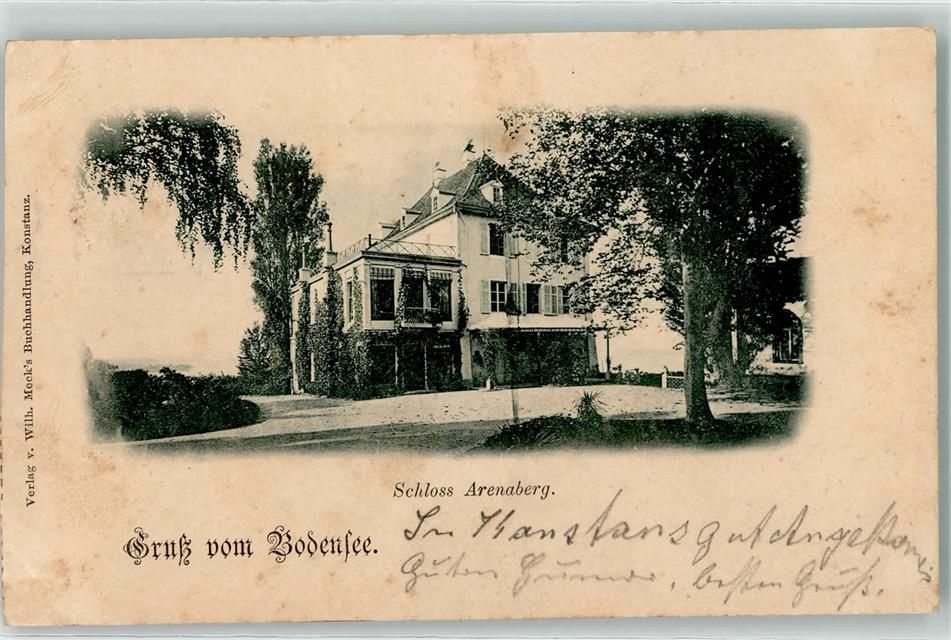 Verlag v. Wilh. Meck's Buchhandlung, Konstanz.
Schloss Arenaberg.
Gruß vom Bodensee.
In Konstans gut Angekom
Guten Humor, besten Gruß.